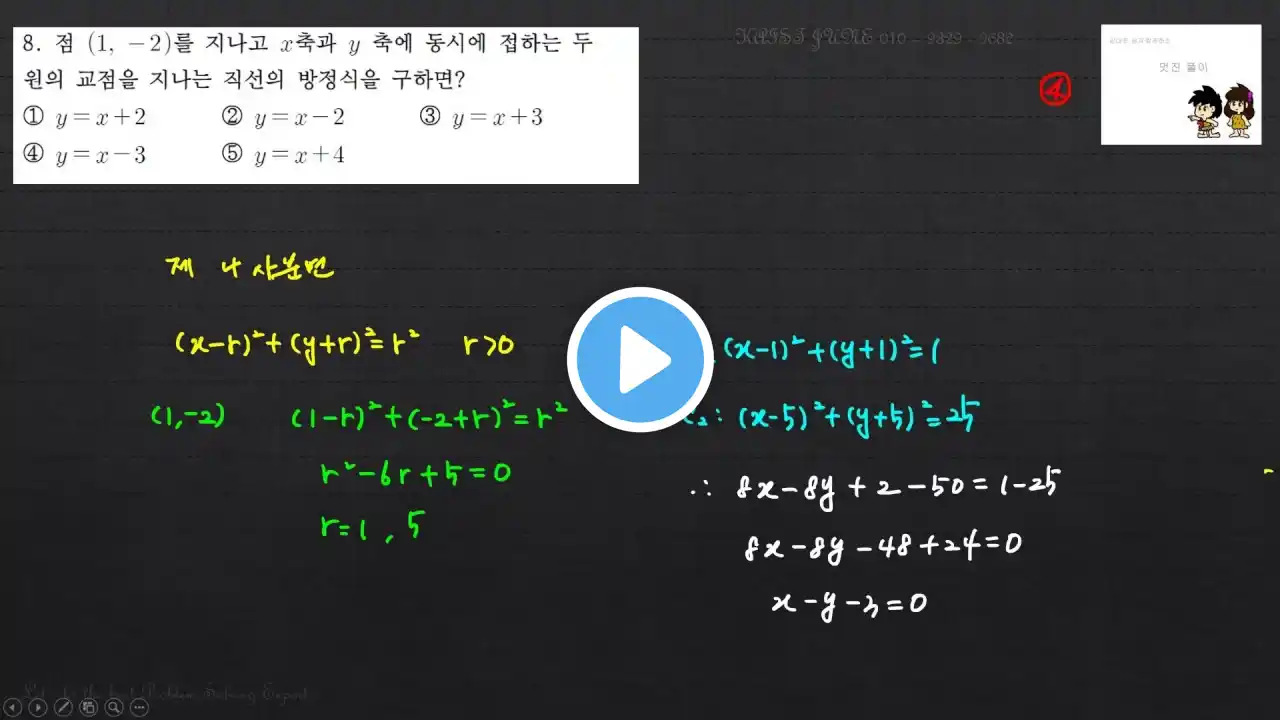 8. 점 (1, −2)를 지나고 x축과 y 축에 동시에 접하는 두
원의 교점을 지나는 직선의 방정식을 구하면?
① y=x+2 ② y=x−2 ③ y=x+3
④ y=x−3 ⑤ y=x+4
④
멋진 풀이
제 4 사분면
(x−r)²+(y+r)²=r² r>0
(1,−2) (1−r)²+(−2+r)²=r²
r²−6r+5=0
r=1, 5
(x−1)²+(y+1)²=1
: (x−5)²+(y+5)²=25
∴ 8x−8y+2−50=1−25
8x−8y−48+24=0
x−y−3=0